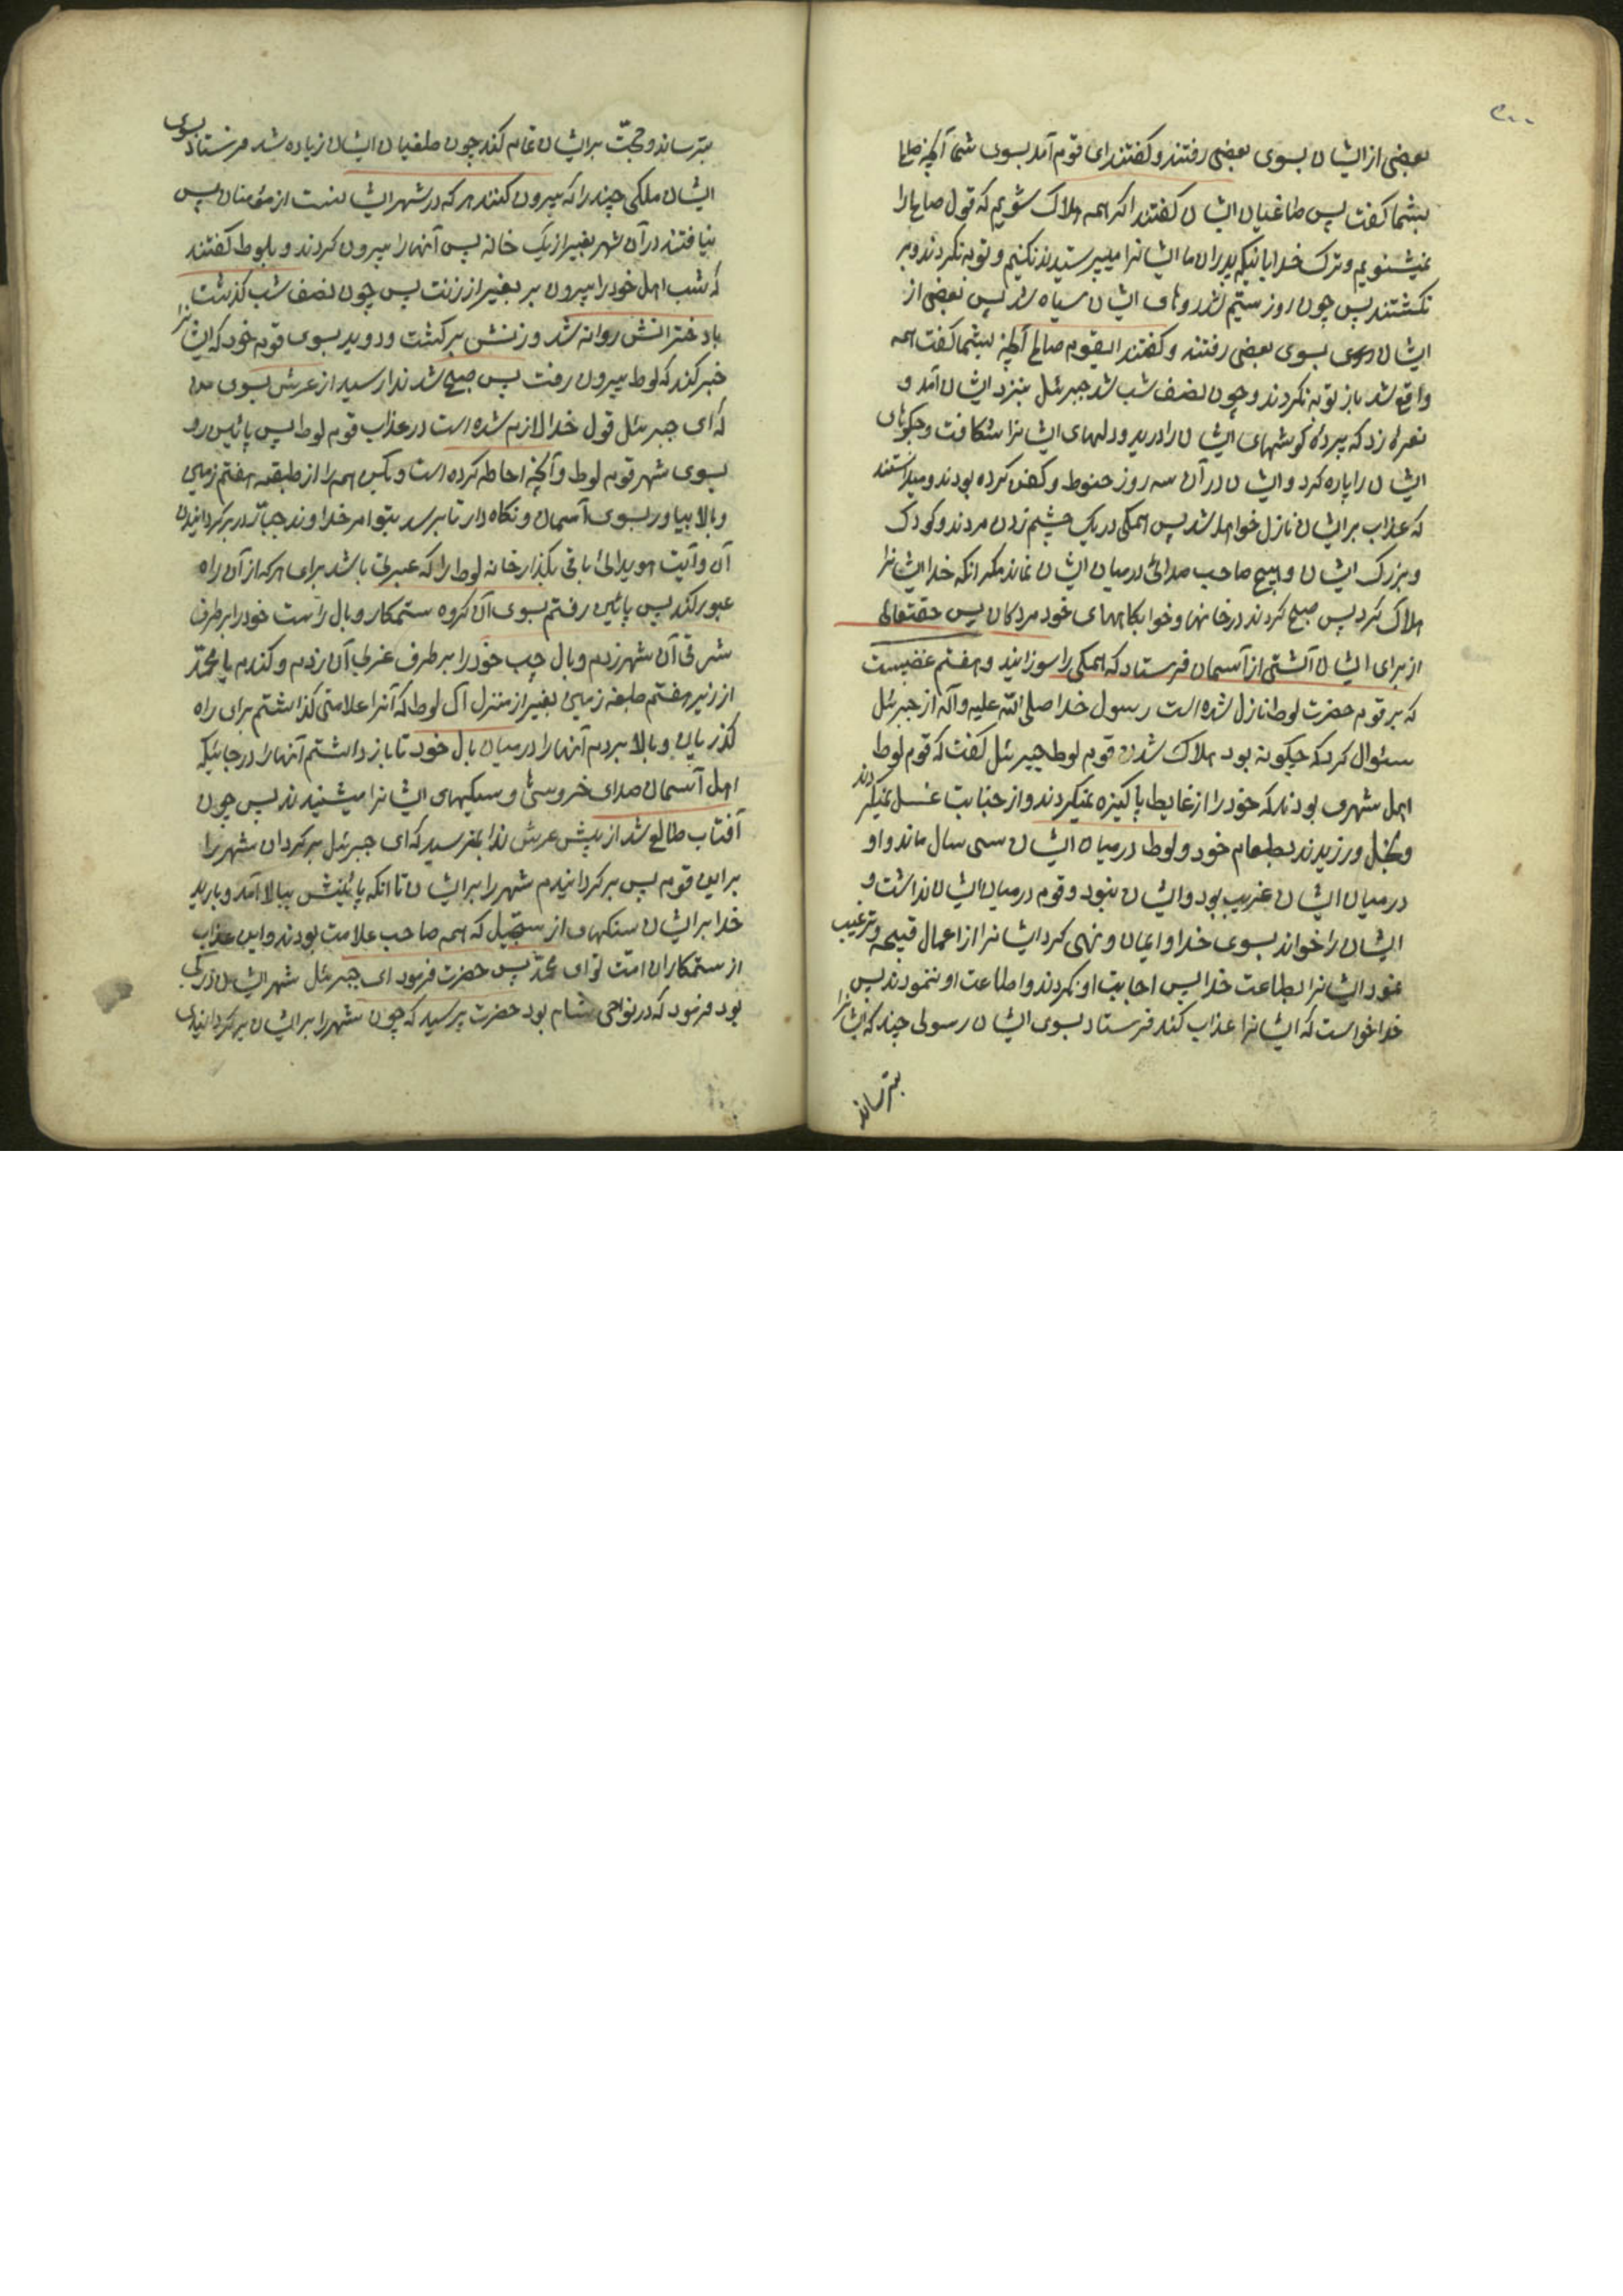 بعضی از ایشان بسوی بعضی رفتند و کفتند ای قوم آمد بسوی شما آنچه صالح
بشما کفت پس طاغیان ایشان کفتند اکر همه هلاک شویم که قول صالح را
نمیشنویم و ترک خدایانیکه پدران ما ایشانرا میپرستیدند نکنیم و توبه نکردند و بر
نکشتند پس چون روز سیّم شد روهای ایشان سیاه شد پس بعضی از
ایشان بسوی بعضی رفتند و کفتند ایقوم صالح آنچه بشما کفت همه
واقع شد باز توبه نکردند و چون نصف شب شد جبرئیل بنزد ایشان آمد و
نعره زد که پردهٔ کوشهای ایشان را درید و دلهای ایشانرا شکافت و جکرهای
ایشان را پاره کرد و ایشان در آن سه روز حنوط و کفن کرده بودند و میدانستند
که عذاب بر ایشان نازل خواهد شد پس همکی در یک چشم زدن مردند و کودک
و بزرک ایشان و هیچ صاحب صدائی در میان ایشان نماند مکر انکه خدا ایشانرا
هلاک کرد پس صبح کردند در خانها و خوابکاههای خود مردکان پس حقتعالی
از برای ایشان آتشی از آسمان فرستاد که همکی را سوزانید و هفتم غضبیست
که بر قوم حضرت لوط نازل شده است رسول خدا صلی الله علیه و آله از جبرئیل
سئوال کرد که چکونه بود هلاک شدن قوم لوط جبرئیل کفت که قوم لوط
اهل شهری بودند که خود را از غایط پاکیزه نمیکردند و از جنابت غسل نمیکردند
و بخل ورزیدند بطعام خود و لوط در میان ایشان سی سال ماند و او
در میان ایشان غریب بود و ایشان نبود و قوم در میان ایشان نداشت و
ایشان را خواند بسوی خدا و ایمان و نهی کرد ایشانرا از اعمال قبیحه و ترغیب
نمود ایشانرا بطاعت خدا پس اجابت او نکردند و اطاعت او ننمودند پس
خدا خواست که ایشانرا عذاب کند فرستاد بسوی ایشان رسولی چند که ایشانرا
بترساند
بترساند و حجّت بر ایشان تمام کند چون طغیان ایشان زیاده شد فرستاد بسوی
ایشان ملکی چند را که بیرون کنند هر که در شهر ایشانست از مؤمنان پس
نیافتند در آن شهر بغیر از یک خانه پس آنها را بیرون کردند و بلوط کفتند
که شب اهل خود را بیرون بر بغیر از زنت پس چون نصف شب کذشت
با دخترانش روانه شد و زنش بر کشت و دوید بسوی قوم خود که ایشانرا
خبر کند که لوط بیرون رفت پس صبح شد ندا رسید از عرش بسوی من
که ای جبرئیل قول خدا لازم شده است در عذاب قوم لوط پس پائین رو
بسوی شهر قوم لوط و آنچه احاطه کرده است و بکن همه را از طبقهٔ هفتم زمین
و بالا بیاور بسوی آسمان و نکاه دار تا برسد بتو امر خداوند جبّار در بر کردانیدن
آن و آیت هویدائی باقی بکذار خانه لوط را که عبرتی باشد برای هر که از آن راه
عبور کند پس پائین رفتم بسوی آن کروه ستمکار و بال راست خود را بر طرف
شرقی آن شهر زدم و بال چپ خود را بر طرف غربی آن زدم و کندم یا محمّد
از زیر هفتم طبقه زمین بغیر از منزل آل لوط که آنرا علامتی کذاشتم برای راه
کذریان و بالا بردم آنها را در میان بال خود تا باز داشتم آنها را در جائیکه
اهل آسمان صدای خروسها و سکهای ایشانرا میشنیدند پس چون
آفتاب طالع شد از پیش عرش ندا بمن رسید که ای جبرئیل بر کردان شهر را
بر این قوم پس بر کردانیدم شهر را بر ایشان تا انکه پائینش ببالا آمد و بارید
خدا بر ایشان سنکهای از سجّیل که همه صاحب علامت بودند و این عذاب
از ستمکاران امّت تو ای محمّد پس حضرت فرمود ای جبرئیل شهر ایشان در کجا
بود فرمود که در نواحی شام بود حضرت پرسید که چون شهر را بر ایشان بر کردانیدی